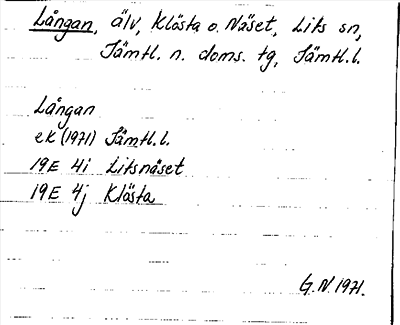 Långan, älv, Klösta o. Näset, Lits sn,
Jämtl. n. doms. tg, Jämtl. l.
Långan
ek (1971) Jämtl. l.
19E 4i Litsnäset
19E 4j Klösta
G.N. 1971.